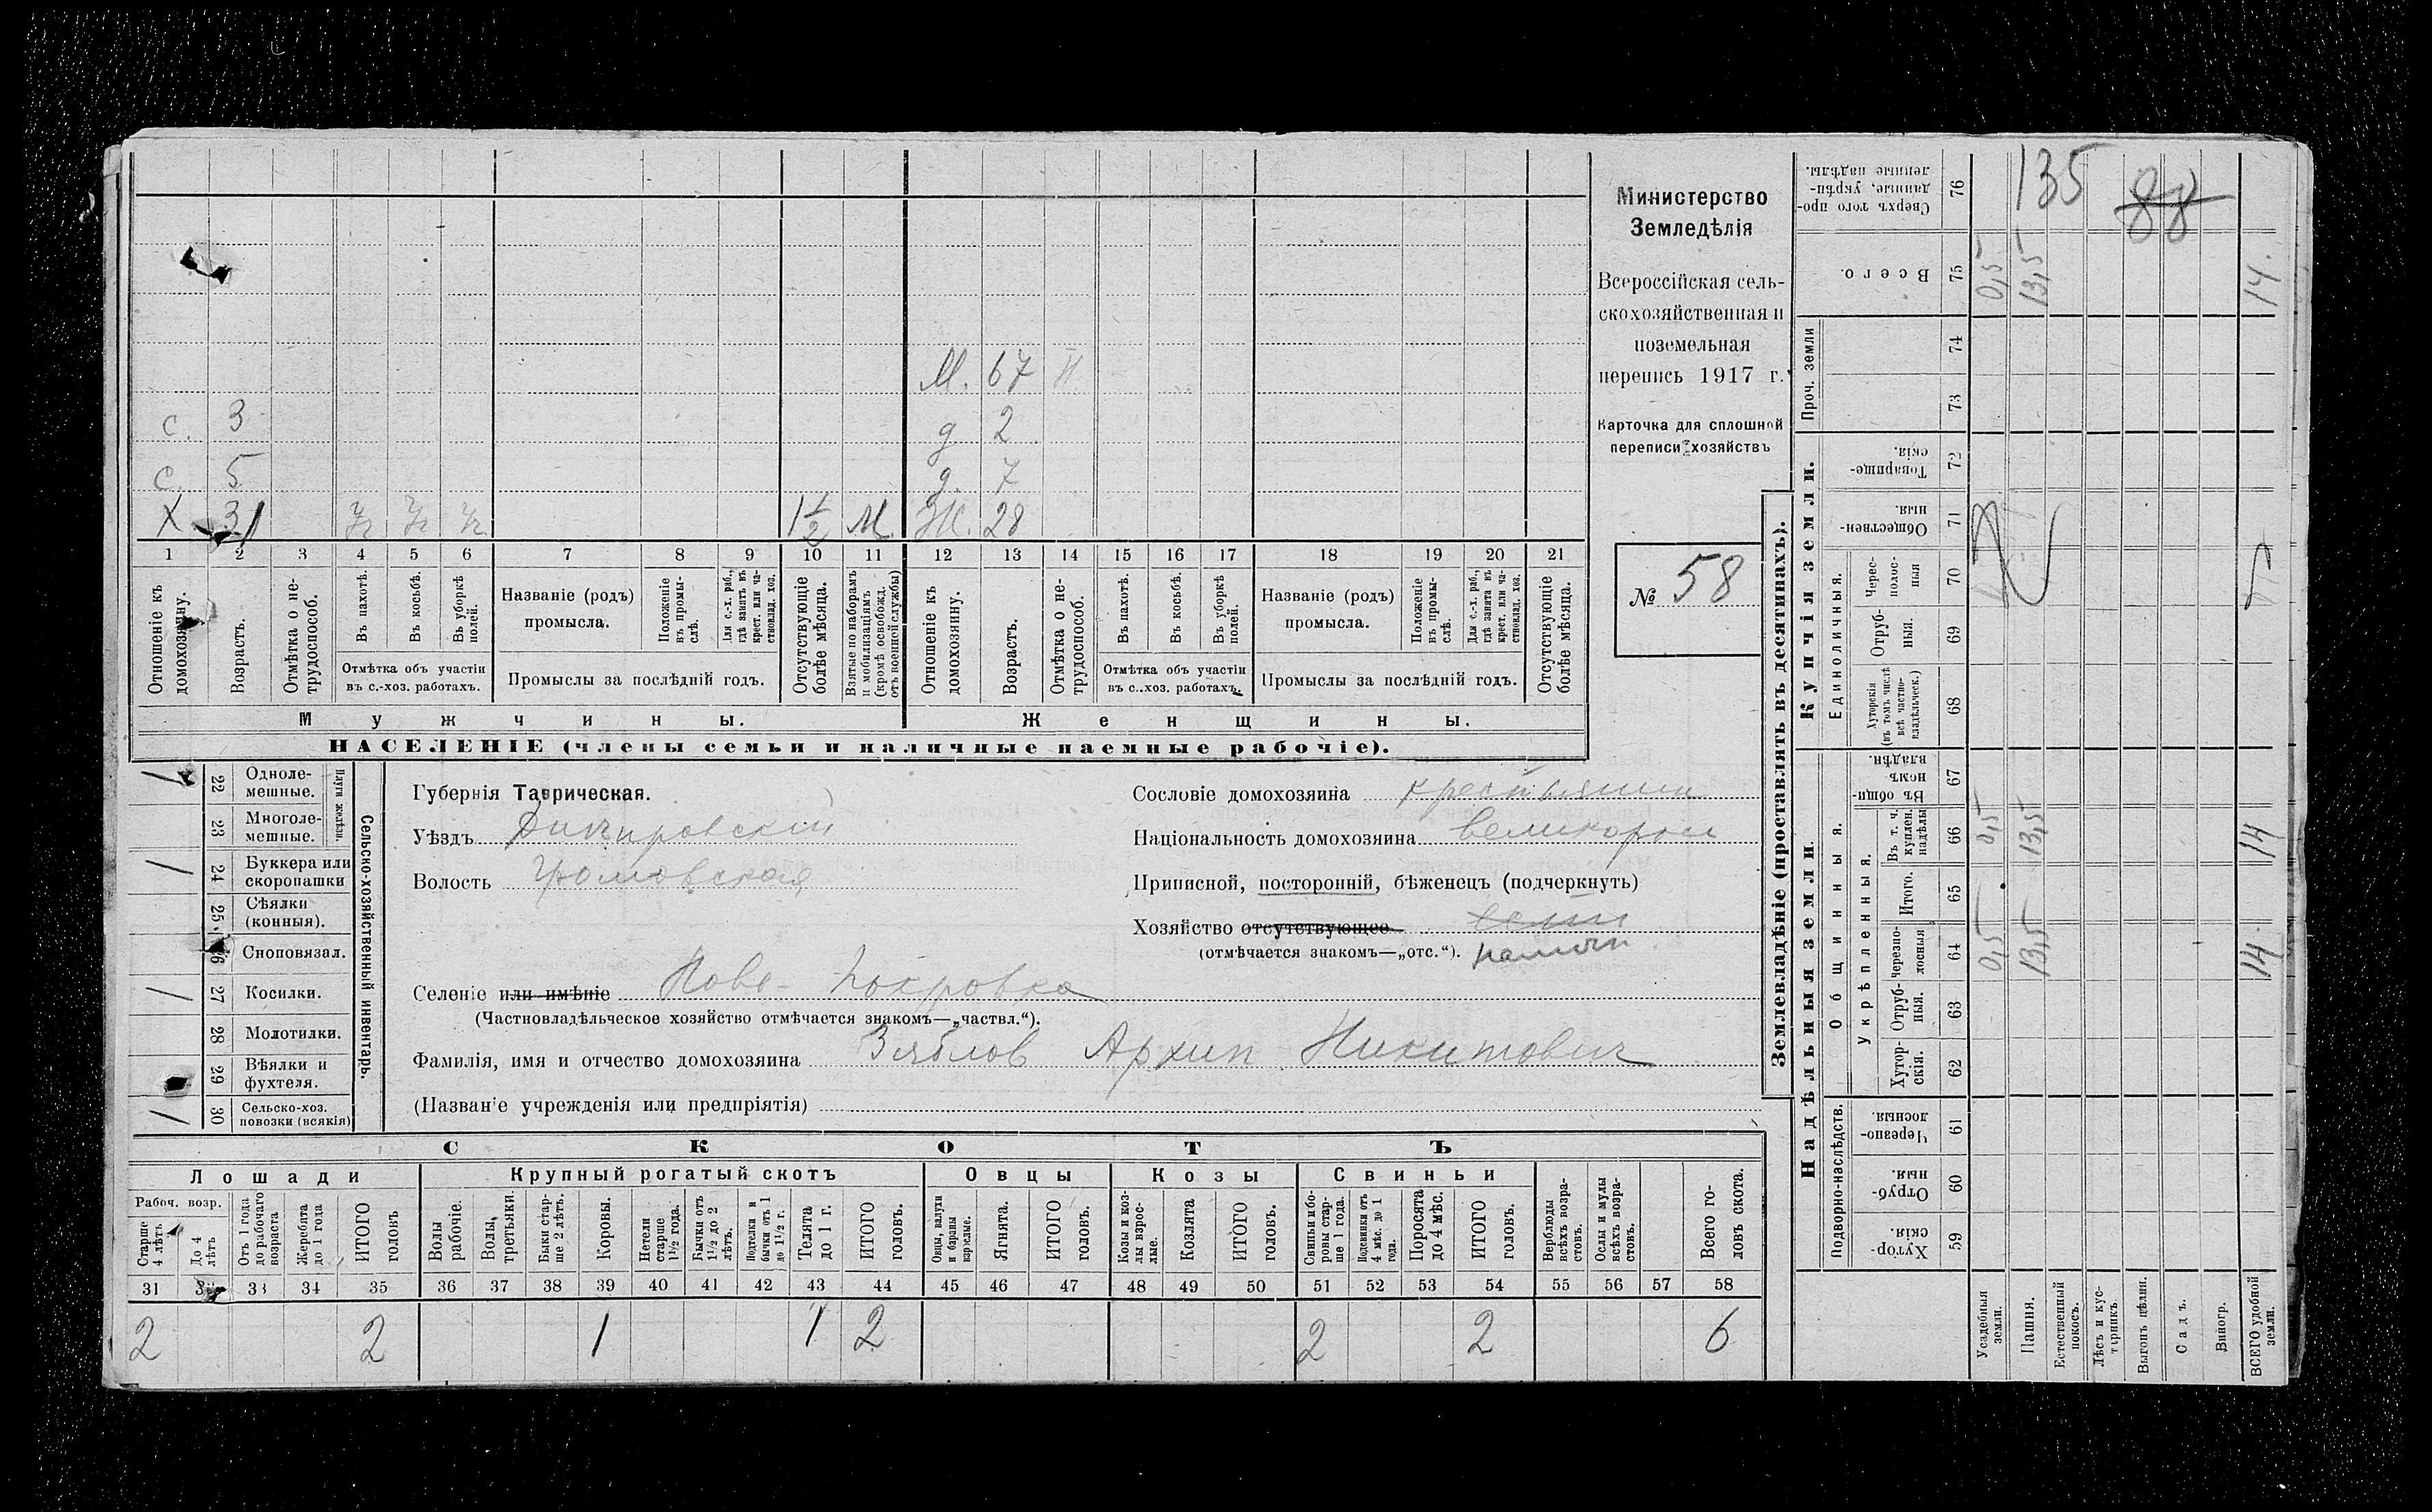 Министерство
Земледѣлія
Всероссійская сель-
скохозяйственная и
поземельная
перепись 1917 г.
Карточка для сплошной
переписи хозяйствъ
№ 58
М. 67 Н
с. 3 д 2
с. 5 д. 7
Х 31 1½ М. Ж. 28
1 2 3 4 5 6 7 8 9 10 11 12 13 14 15 16 17 18 19 20 21
Отношеніе къ домохозяину.
Возрастъ.
Отмѣтка о не-трудоспособ.
Въ пахотѣ.
Въ косьбѣ.
Въ уборкѣ полей.
Отмѣтка объ участіи
въ с.-хоз. работахъ.
Названіе (родъ)
промысла.
Положеніе въ промы-слѣ.
Для с.-х. раб., гдѣ занятъ въ крест. или ча-стновлад. хоз.
Промыслы за послѣдній годъ.
Отсутствующіе болѣе мѣсяца.
Взятые по наборамъ и мобилизаціямъ (кромѣ освобожд. отъ военной службы)
Отношеніе къ домохозяину.
Возрастъ.
Отмѣтка о не-трудоспособ.
Въ пахотѣ.
Въ косьбѣ.
Въ уборкѣ полей.
Отмѣтка объ участіи
въ с.-хоз. работахъ.
Названіе (родъ)
промысла.
Положеніе въ промы-слѣ.
Для с.-х. раб., гдѣ занята въ крест. или ча-стновлад. хоз.
Промыслы за послѣдній годъ.
Отсутствующіе болѣе мѣсяца.
Мужчины. Женщины.
НАСЕЛЕНІЕ (члены семьи и наличные наемные рабочіе).
Сельско-хозяйственный инвентарь.
Плуги желѣзн.
/ 22 Одноле-мешные.
23 Многоле-мешные.
/ 24 Буккера или скоропашки
25 Сѣялки (конныя).
26 Сноповязал.
/ 27 Косилки.
28 Молотилки.
29 Вѣялки и фухтеля.
/ 30 Сельско-хоз. повозки (всякія)
Губернія Таврическая.
Уѣздъ Днѣпровскій
Волость Громовская
Селеніе или имѣніе Ново-Покровка
(Частновладѣльческое хозяйство отмѣчается знакомъ—„частвл.“).
Фамилія, имя и отчество домохозяина Зяблов Архип Никитович
(Названіе учрежденія или предпріятія)
Сословіе домохозяина крестьянин
Національность домохозяина великорос
Приписной, посторонній, бѣженецъ (подчеркнуть)
Хозяйство отсутствующее
(отмѣчается знакомъ—„отс.“).
СКОТЪ
Лошади Крупный рогатый скотъ Овцы Козы Свиньи
Рабоч. возр.
Старше 4 лѣтъ
До 4 лѣтъ
Отъ 1 года до рабочаго возраста
Жеребята до 1 года
ИТОГО головъ
Волы рабочіе.
Волы, третьяки.
Быки стар-ше 2 лѣтъ.
Коровы.
Нетели старше 1½ года.
Бычки отъ 1½ до 2 лѣтъ.
Подтелки и бычки отъ 1 до 1½ г.
Телята до 1 г.
ИТОГО головъ.
Овцы, валухи и бараны взрослые.
Ягнята.
ИТОГО головъ.
Козы и коз-лы взрос-лые.
Козлята
ИТОГО головъ.
Свиньи и бо-ровы стар-ше 1 года.
Подсвинки отъ 4 мѣс. до 1 года.
Поросята до 4 мѣс.
ИТОГО головъ.
Верблюды всѣхъ возра-стовъ.
Ослы и мулы всѣхъ возра-стовъ.
Всего го-ловъ скота.
31 32 33 34 35 36 37 38 39 40 41 42 43 44 45 46 47 48 49 50 51 52 53 54 55 56 57 58
2 2 1 1 2 2 2 6
Землевладѣніе (проставлять въ десятинахъ).
Надѣльныя земли
Купчія земли.
Проч. земли
Подворно-наслѣдств.
Общинныя.
Укрѣпленныя.
Единоличныя.
Сверхъ того про-данные, укрѣп-ленные надѣлы. 76 135 88
Всего. 75 0,5 13,5 14.
74
73
Товарище-скія. 72
Обществен-ныя. 71
Черес-полос-ныя 70
Отруб-ныя. 69
Хуторскія (въ томъ числѣ всѣ частно-владѣльческ.) 68
Въ общин-номъ владѣн. 67
Въ т. ч. куплен. надѣлы 66 0,5 13,5 14
Итого. 65
Черезпо-лосныя 64 0,5 13,5 14
Отруб-ныя. 63
Хутор-скія. 62
Черезпо-лосныя 61
Отруб-ныя. 60
Хутор-скія. 59
Усадебныя земли.
Пашня.
Естественный покосъ.
Лѣсъ и кус-тарникъ.
Выгонъ цѣлин.
Садъ.
Виногр.
ВСЕГО удобной земли.